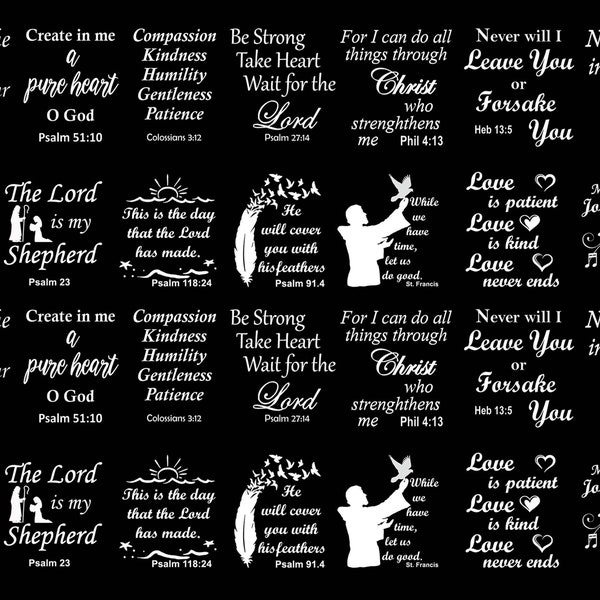 Create in me
a
pure heart
O God
Psalm 51:10
Compassion
Kindness
Humility
Gentleness
Patience
Colossians 3:12
Be Strong
Take Heart
Wait for the
Lord
Psalm 27:14
For I can do all
things through
Christ
who
strenghthens
me Phil 4:13
Never will I
Leave You
or
Forsake
Heb 13:5 You
The Lord
is my
Shepherd
Psalm 23
This is the day
that the Lord
has made.
Psalm 118:24
He
will cover
you with
his feathers
Psalm 91.4
While
we
have
time,
let us
do good.
St. Francis
Love
is patient
Love
is kind
Love
never ends
Create in me
a
pure heart
O God
Psalm 51:10
Compassion
Kindness
Humility
Gentleness
Patience
Colossians 3:12
Be Strong
Take Heart
Wait for the
Lord
Psalm 27:14
For I can do all
things through
Christ
who
strenghthens
me Phil 4:13
Never will I
Leave You
or
Forsake
Heb 13:5 You
The Lord
is my
Shepherd
Psalm 23
This is the day
that the Lord
has made.
Psalm 118:24
He
will cover
you with
his feathers
Psalm 91.4
While
we
have
time,
let us
do good.
St. Francis
Love
is patient
Love
is kind
Love
never ends